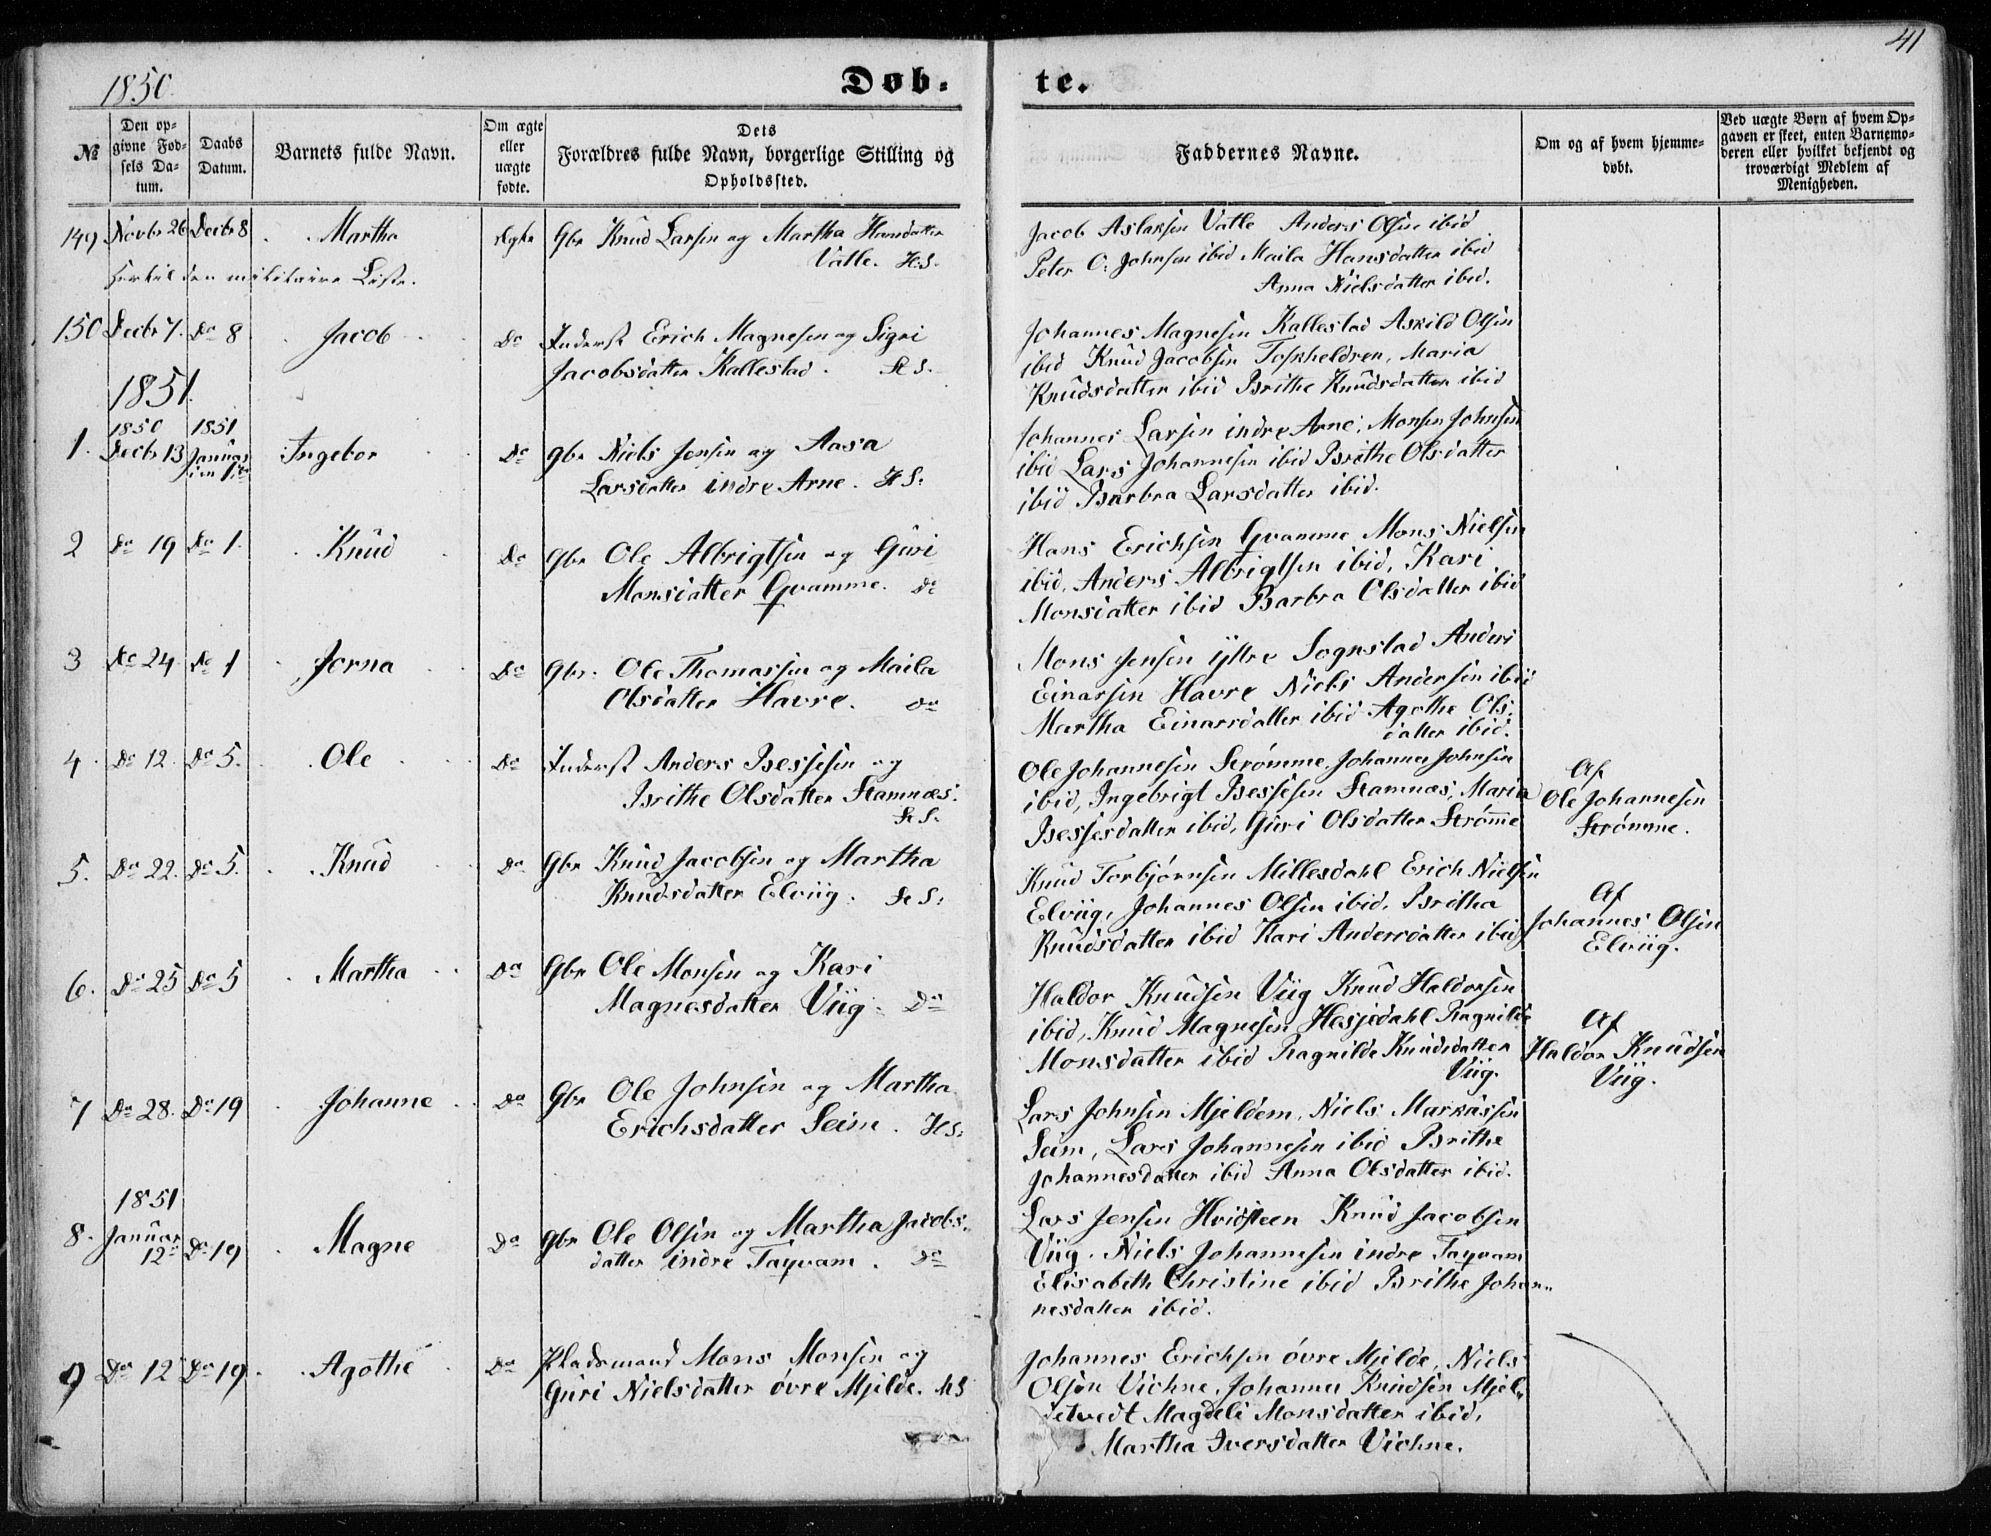 41
1850.
Døb-
te.
№
Den op-
givne Fød-
sels Da-
tum.
Daabs
Datum.
Barnets fulde Navn.
Om ægte
eller
uægte
fødte.
Dets
Forældres fulde Navn, borgerlige Stilling og
Opholdssted.
Faddernes Navne.
Om og af hvem hjemme-
døbt.
Ved uægte Børn af hvem Op-
gaven er skeet, enten Barnemo-
deren eller hvilket bekjendt og
troværdigt Medlem af
Menigheden.
149 Novbr 26 Decbr 8 Martha Ægte Gbr Knud Larsen og Martha Hansdatter
Valle. H:S.
Jacob Aslaksen Valle Anders Olsen ibid
Peter O: Johnsen ibid Maila Hansdatter ibid
Anna Nielsdatter ibid.
Hertil den militaire Liste.
150 Decbr 7. Do 8 Jacob Do Inderst Erich Magnesen og Sigri
Jacobsdatter Kallestad. St S.
Johannes Magnesen Kallestad Askild Olsen
ibid Knud Jacobsen Toskheldren, Maria
Knudsdatter ibid Brithe Knudsdatter ibid
1851.
1850 1851
1. Decbr 13 Januar Ingebor Do Gbr Niels Jensen og Aasa
den 1ste
Larsdatter indre Arne. H S.
Johannes Larsen indre Arne, Monsen Johnsen
ibid Lars Johannesen ibid Brithe Olsdatter
ibid Barbra Larsdatter ibid.
2 Do 19 Do 1. Knud Do Gbr Ole Albrigtsen og Guri
Monsdatter Qvamme. Do
Hans Erichsen Qvamme, Mons Nielsen
ibid, Anders Albrigtsen ibid, Kari
Monsdatter ibid Barbra Olsdatter ibid
3 Do 24 Do 1 Jorna Do Gbr. Ole Thomassen og Maila
Olsdatter Havre. Do
Mons Jensen Yttre Songstad Anders
Einarsen Havre Niels Andersen ibid
Martha Einarsdatter ibid Agothe Ols-
datter ibid.
4. Do 12. Do 5. Ole Do Inderst Anders Bessesen og
Brithe Olsdatter Stamnæs.
St S.
Ole Johannesen Strømme, Johannes Johnsen
ibid, Ingebrigt Bessesen Stamnæs, Maria
Bessesdatter ibid, Guri Olsdatter Strømme
Af
Ole Johannesen
Strømme.
5. Do 22. Do 5. Knud Do Gbr Knud Jacobsen og Martha
Knudsdatter Elviig. St S:
Knud Torbjørnsen Millesdahl Erich Nielsen
Elviig, Johannes Olsen ibid, Britha
Knudsdatter ibid Kari Andersdatter ibid
Af
Johannes Olsen
Elviig.
6. Do 25 Do 5 Martha Do Gbr Ole Monsen og Kari
Magnesdatter Viig. Do
Haldor Knudsen Viig Knud Haldorsen
ibid, Knud Magnesen Hesjedahl Ragnilde
Monsdatter ibid Ragnilde Knudsdatter
Viig.
Af
Haldor Knudsen
Viig.
7 Do 28. Do 19 Johanne Do Gbr Ole Johnsen og Martha
Erichsdatter Seim. H S:
Lars Johnsen Mjeldem, Niels Markussen
Seim, Lars Johannesen ibid Brithe
Johannesdatter ibid Anna Olsdatter ibid.
1851
8. Januar Do 19 Magne Do Gbr Ole Olsen og Martha Jacobs-
12te
datter indre Taqvam. Do
Lars Jensen Hvidsteen Knud Jacobsen
Viig. Niels Johannesen indre Taqvam
Elisabeth Christine ibid Brithe Johan-
nesdatter ibid.
9 Do 12 Do 19. Agothe Do Pladsmand Mons Monsen og
Guri Nielsdatter øvre Mjelde. H S
Johannes Erichsen øvre Mjelde, Niels
Olsøn Vichne, Johannes Knudsen Mjel-
detvedt Magdeli Monsdatter ibid,
Martha Iversdatter Vichne.